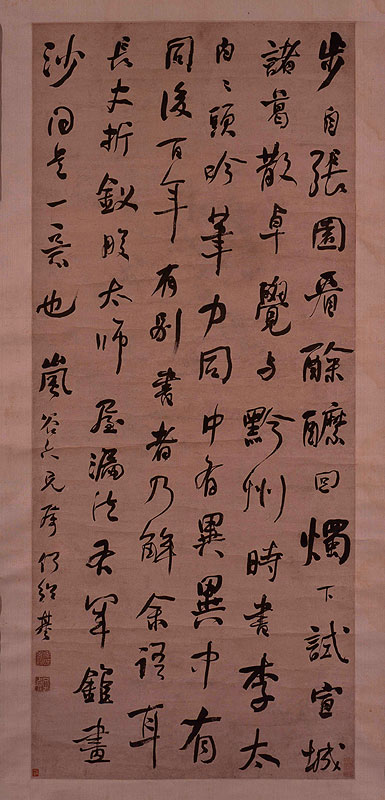 步自張園看酴醾回燭下試宣城
諸葛散卓覺与黔州時書李太
白〻頭吟筆力同中有異異中有
同後百年有別書者乃解余語耳
長史折釵股太師屋漏法右軍錐畫
沙同是一意也 嵐谷兄屬 何紹基